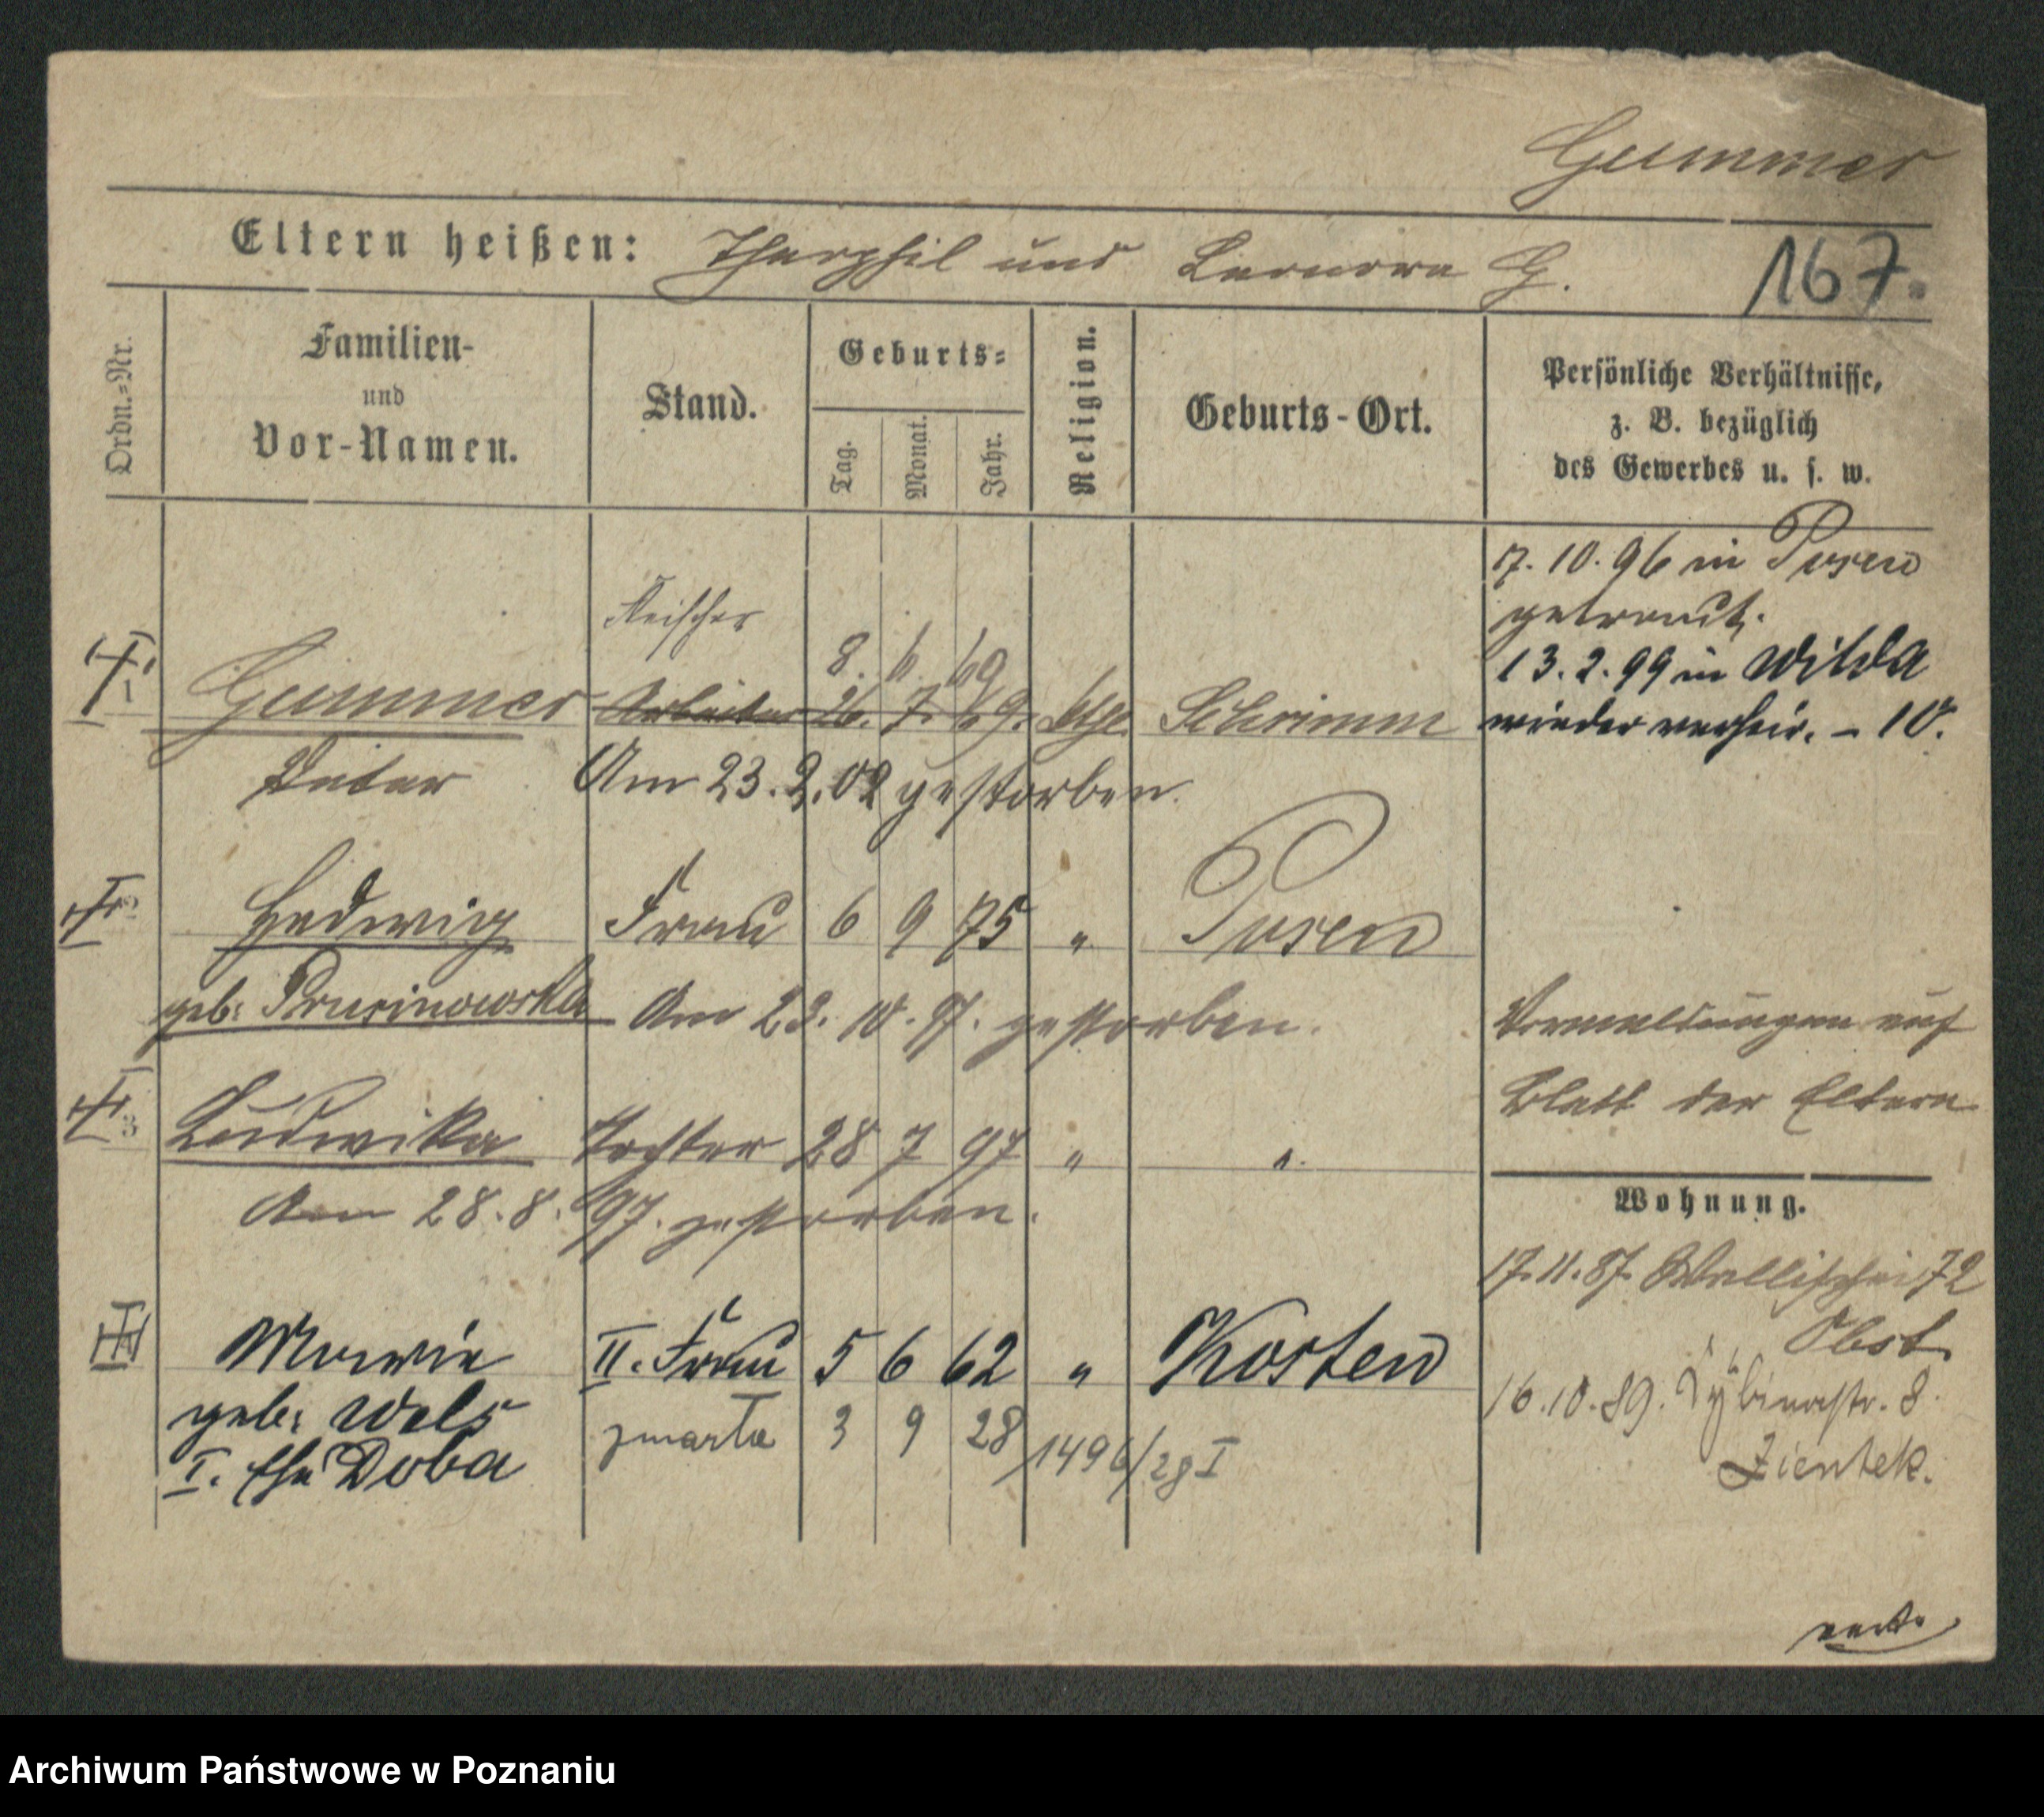 Gummer
Eltern heißen: Theophil und Leonore G.
167.
Ordn.=Nr.
Familien-
und
Vor-Namen.
Stand.
Geburts=
Tag.
Monat.
Jahr.
Religion.
Geburts-Ort.
Persönliche Verhältnisse,
z. B. bezüglich
des Gewerbes u. s. w.
17. 10. 96 in Posen
getraut.
13. 2. 99 in Wilda
wieder verheir. - 10.
Fleischer
8. 6 69
1 Gummer Arbeiter 26. 7. 69. kath. Schrimm
Peter
Am 23. 2. 02 gestorben.
2 Hedwig Frau 6 9 75 " Posen
geb. Prusinowska Am 23. 10. 97. gestorben.
3 Ludwika Tochter 28 7 97 " "
Am 28. 8. 97. gestorben.
4 Marie II. Frau 5 6 62 " Kosten
geb. Wels zmarła 3 9 28 1496/28 I
I. Ehe Doba
Vormeldungen auf
Blatt der Eltern
Wohnung.
17. 11. 87. Wallischei 72
Obst.
16. 10. 89. Tÿbinastr. 8.
Zientek.
Archiwum Państwowe w Poznaniu